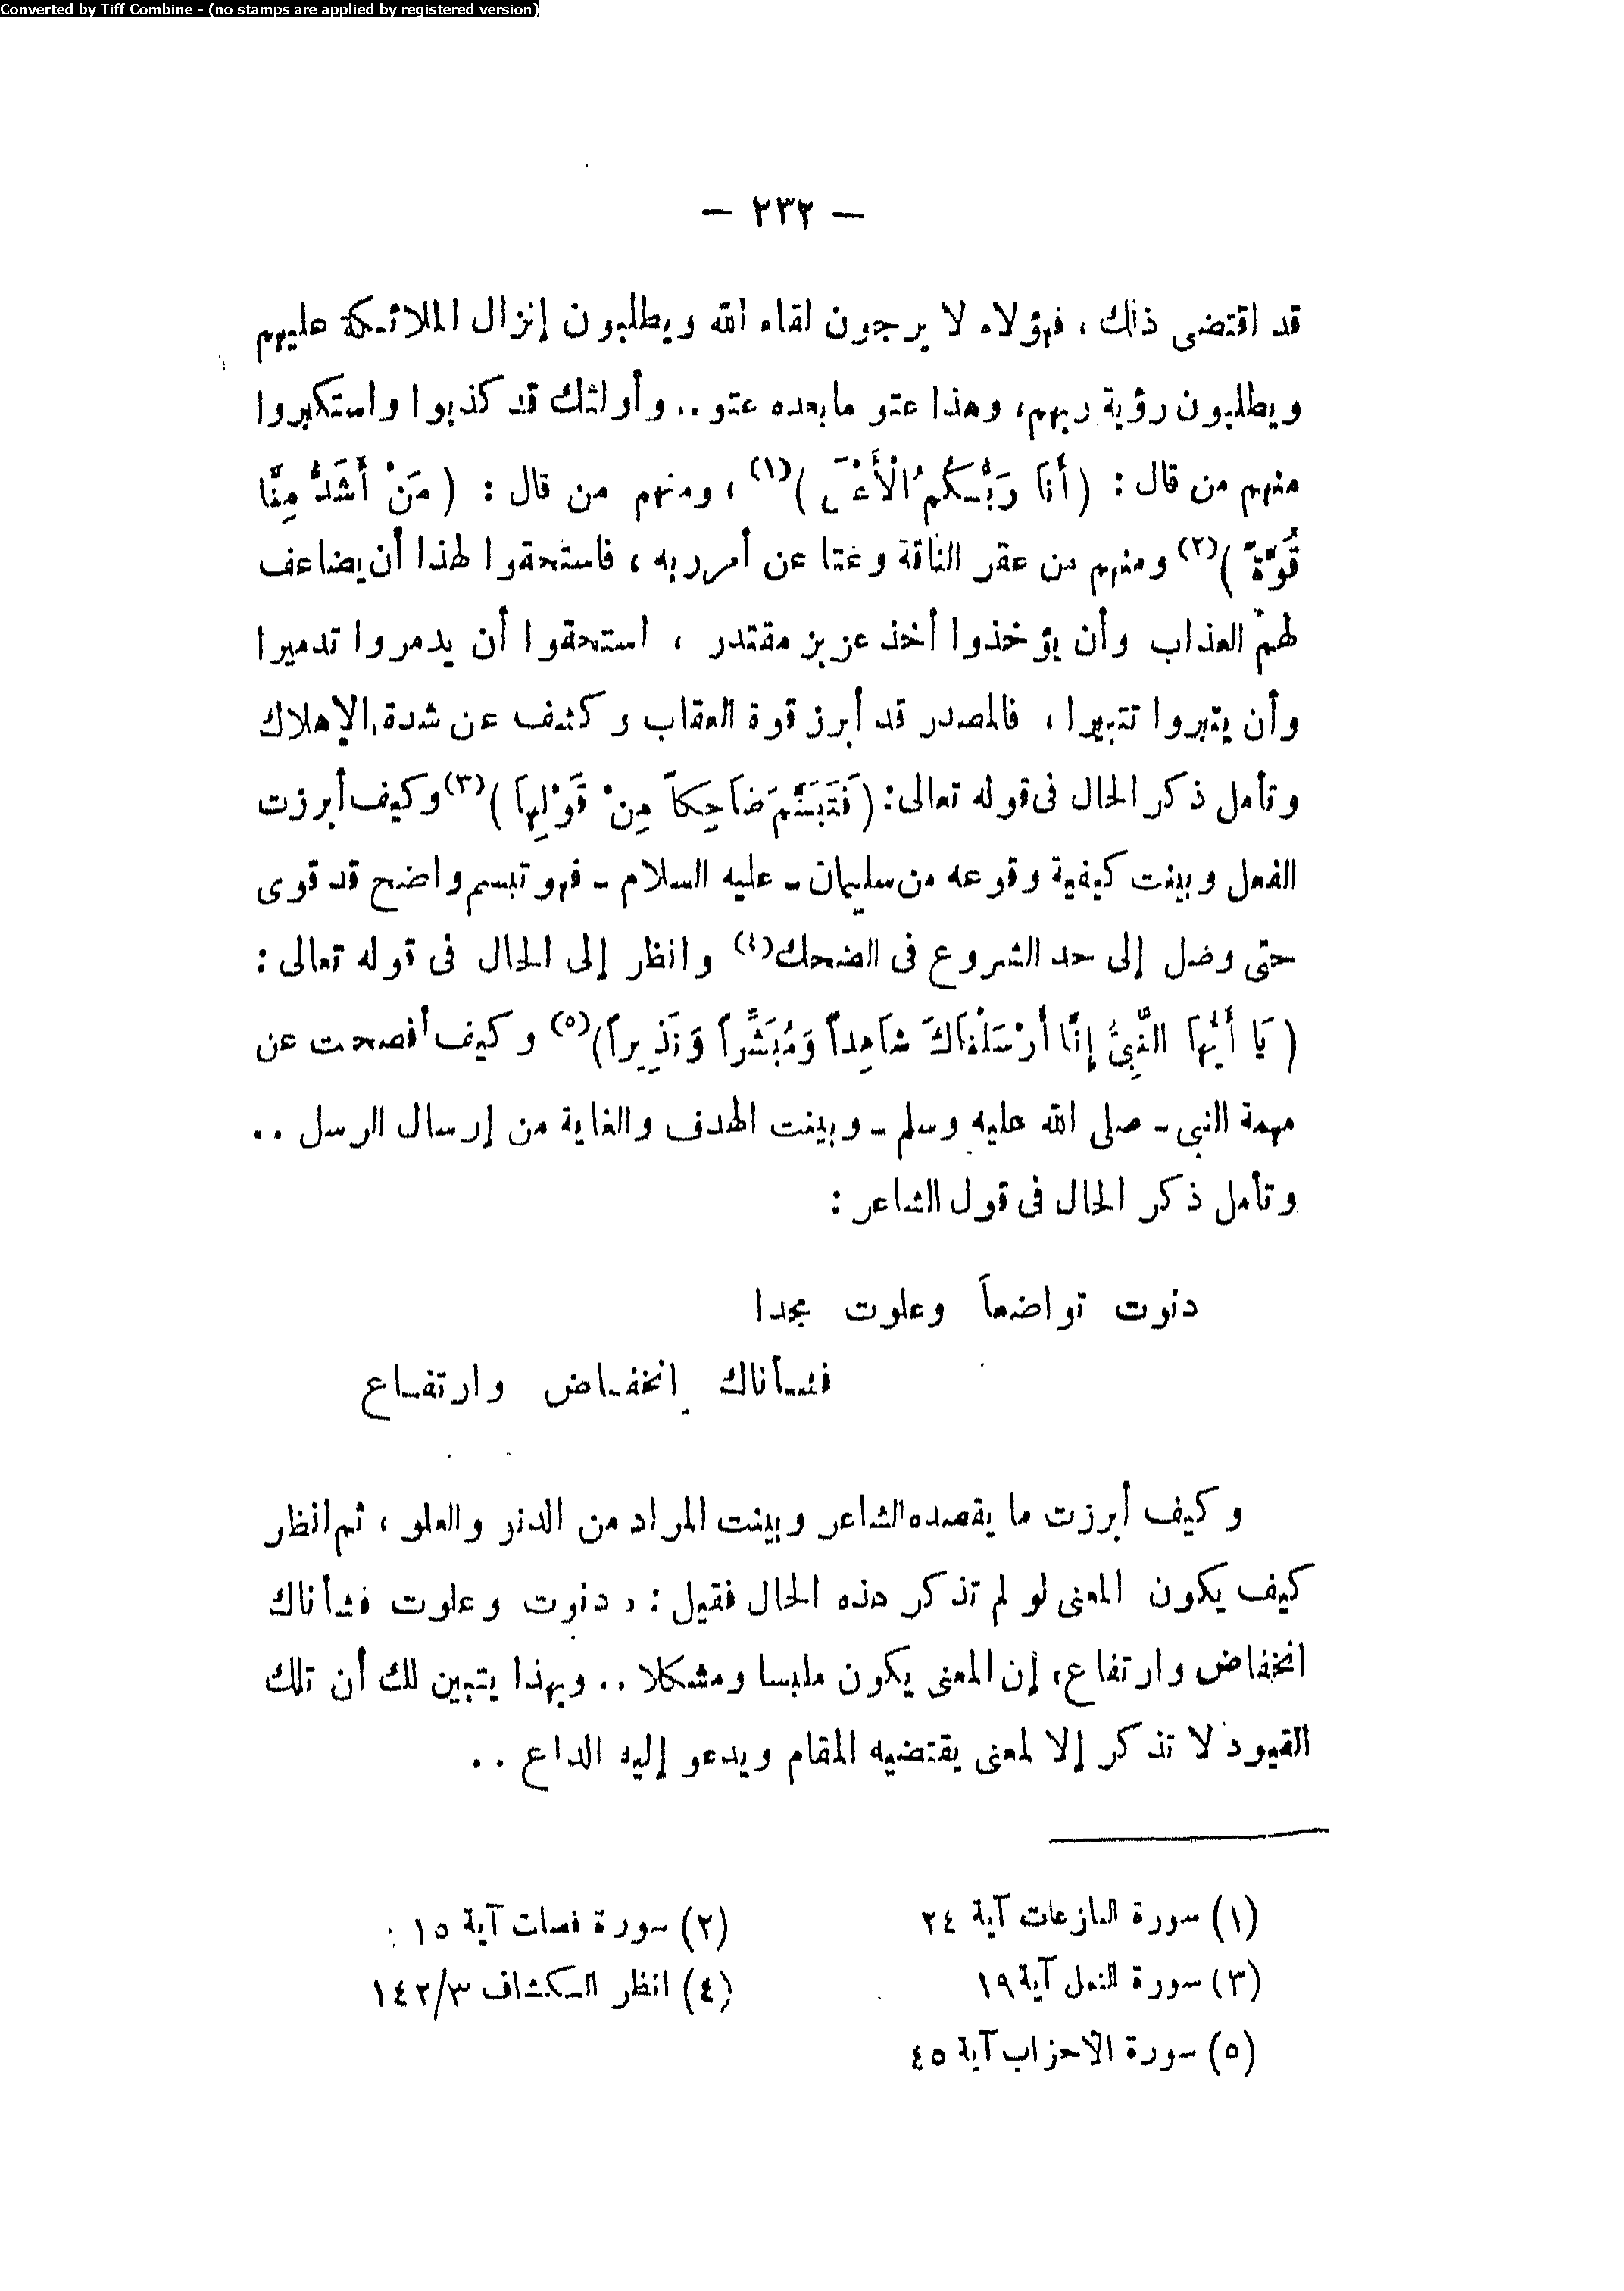 Converted by Tiff Combine - (no stamps are applied by registered version)
— ٢٣٢ —
قد اقتضى ذلك ، فهؤلاء لا يرجون لقاء الله ويطلبون إنزال الملائكة عليهم
ويطلبون رؤية ربهم، وهذا عتو ما بعده عتو .. وأولئك قد كذبوا واستكبروا
منهم من قال : ( أَنَا رَبُّكُمُ الْأَعْلَى )(١) ، ومنهم من قال : ( مَنْ أَشَدُّ مِنَّا
قُوَّةً )(٢) ومنهم من عقر الناقة وعتا عن أمر ربه ، فاستحقوا لهذا أن يضاعف
لهم العذاب وأن يؤخذوا أخذ عزيز مقتدر ، استحقوا أن يدمروا تدميرا
وأن يتبروا تتبيرا ، فالمصدر قد أبرز قوة العقاب وكشف عن شدة الإهلاك
وتأمل ذكر الحال فى قوله تعالى: ( فَتَبَسَّمَ ضَاحِكاً مِنْ قَوْلِهَا )(٣) وكيف أبرزت
الفعل وبينت كيفية وقوعه من سليمان - عليه السلام - فهو تبسم واضح قد قوى
حتى وصل إلى حد الشروع فى الضحك(٤) وانظر إلى الحال فى قوله تعالى :
( يَا أَيُّهَا النَّبِىُّ إِنَّا أَرْسَلْنَاكَ شَاهِداً وَمُبَشِّراً وَنَذِيراً )(٥) وكيف أفصحت عن
مهمة النبى - صلى الله عليه وسلم - وبينت الهدف والغاية من إرسال الرسل ..
وتأمل ذكر الحال فى قول الشاعر :
دنوت تواضعاً وعلوت مجدا
فشأناك إنخفاض وارتفاع
وكيف أبرزت ما يقصده الشاعر وبينت المراد من الدنو والعلو ، ثم انظر
كيف يكون المعنى لو لم تذكر هذه الحال فقيل : « دنوت وعلوت فشأناك
انخفاض وارتفاع، إن المعنى يكون ملبسا ومشكلا .. وبهذا يتبين لك أن تلك
القيود لا تذكر إلا لمعنى يقتضيه المقام ويدعو إليه الداع ..
(١) سورة النازعات آية ٢٤ (٢) سورة فصلت آية ١٥ .
(٣) سورة النمل آية ١٩ (٤) انظر الكشاف ١٤٢/٣
(٥) سورة الأحزاب آية ٤٥